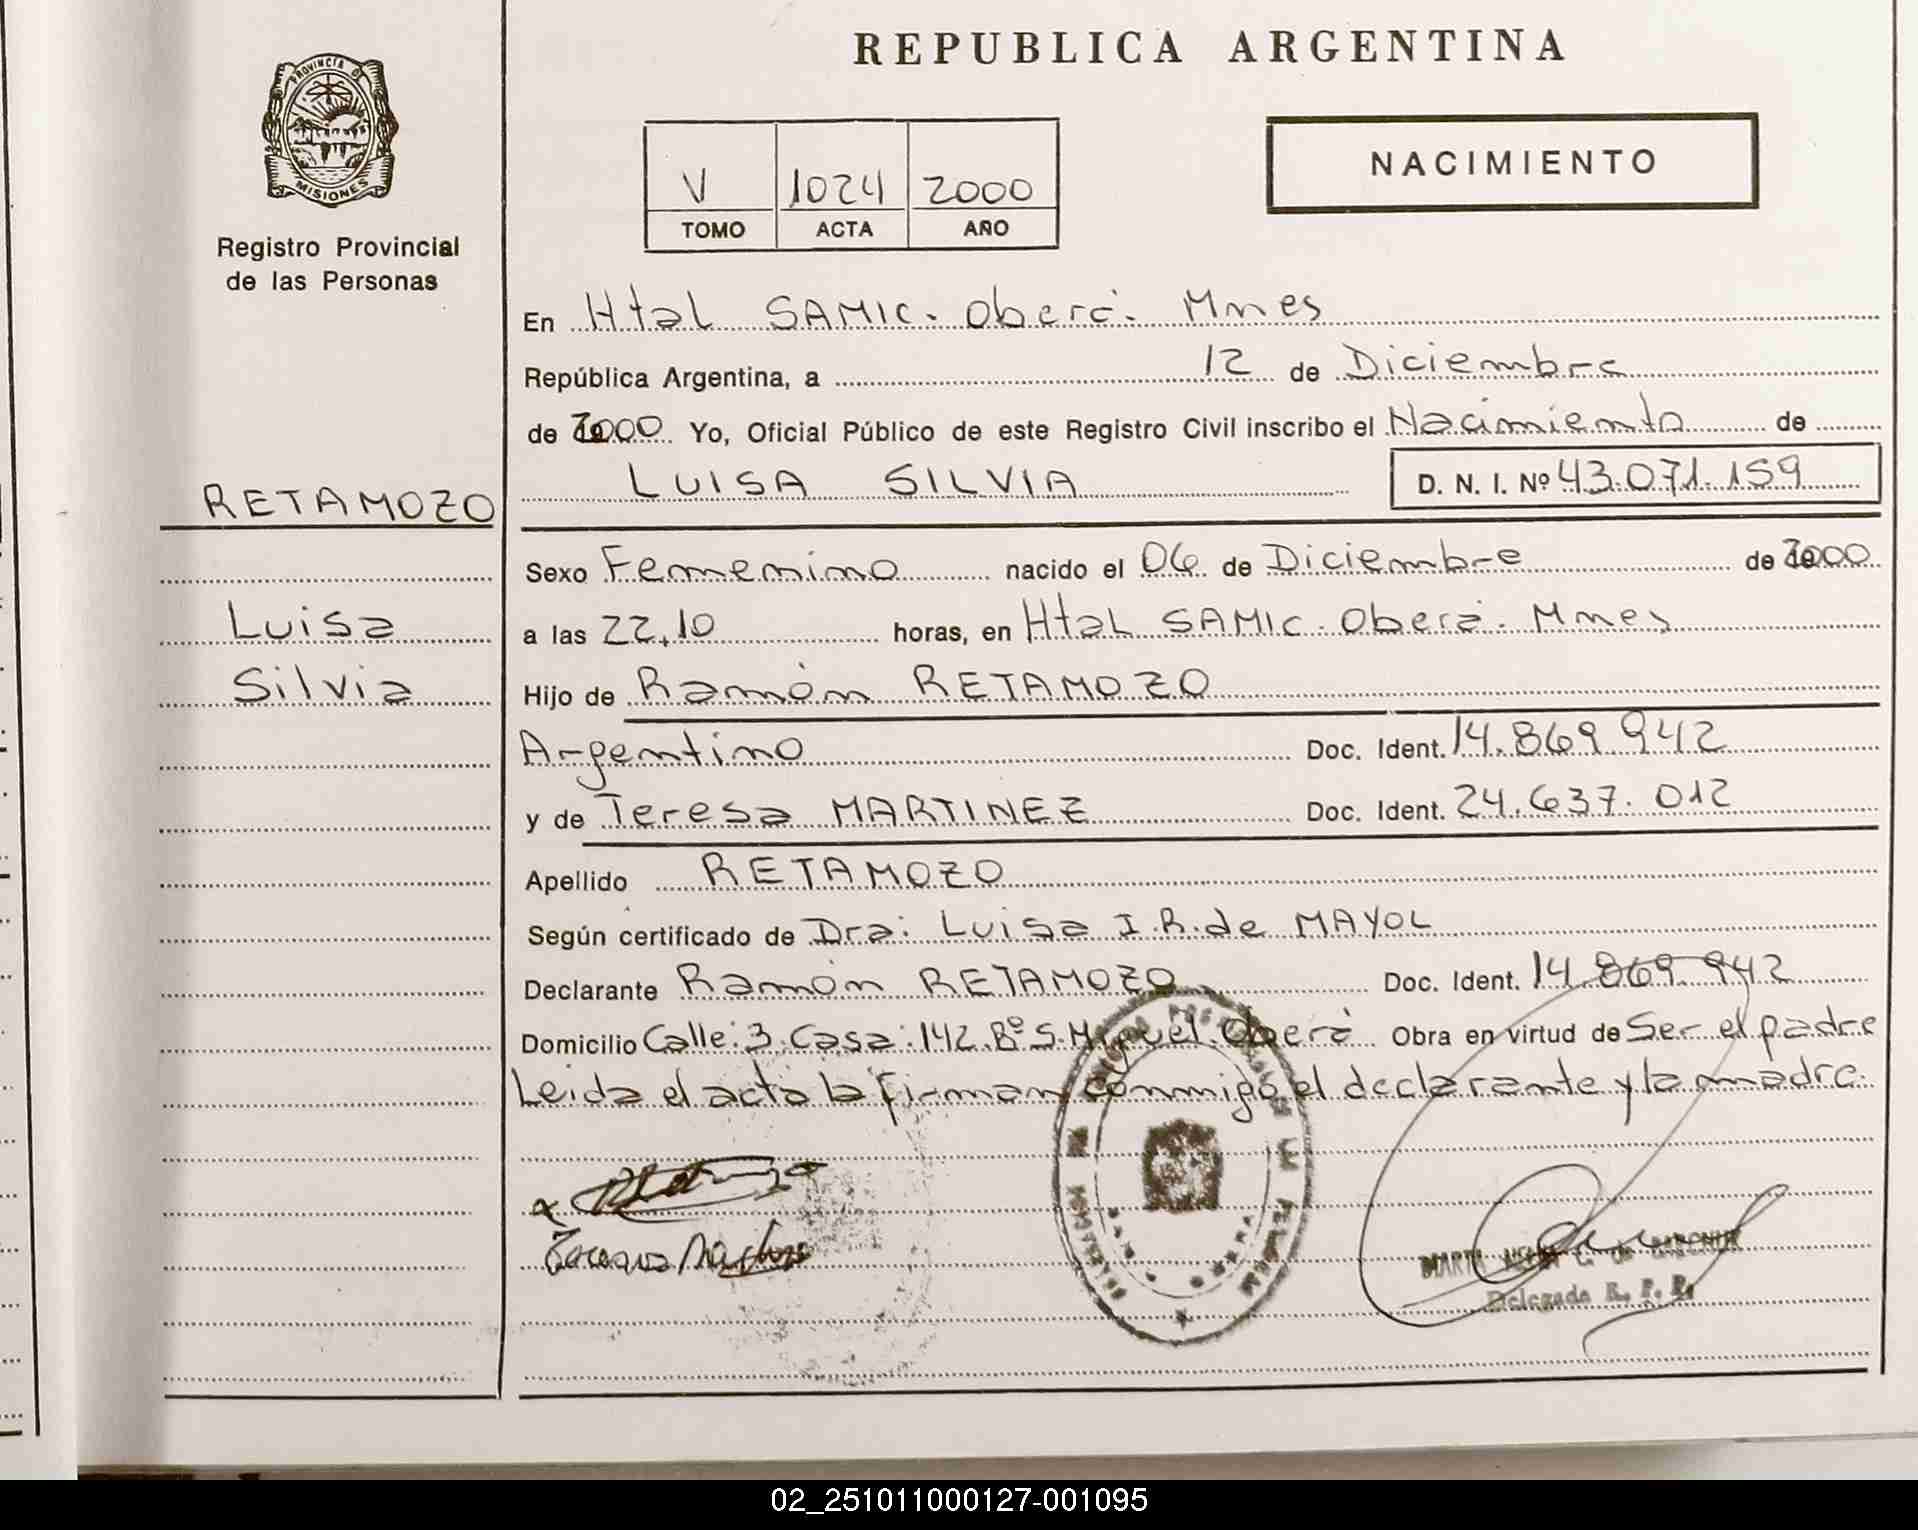 REPUBLICA ARGENTINA
PROVINCIA DE
MISIONES
Registro Provincial
de las Personas
V 1024 2000
TOMO ACTA AÑO
NACIMIENTO
En Htal SAMIC. Oberá. Mnes
República Argentina, a 12 de Diciembre
de 2000 Yo, Oficial Público de este Registro Civil inscribo el Nacimiento de
LUISA SILVIA D. N. I. Nº 43.071.159
RETAMOZO
Luisa
Silvia
Sexo Femenino nacido el 06 de Diciembre de 2000
a las 22,10 horas, en Htal SAMIC. Oberá. Mnes
Hijo de Ramón RETAMOZO
Argentino Doc. Ident. 14.869.942
y de Teresa MARTINEZ Doc. Ident. 24.637.012
Apellido RETAMOZO
Según certificado de Dra: Luisa I.R. de MAYOL
Declarante Ramón RETAMOZO Doc. Ident. 14.869.942
Domicilio Calle:3.Casa:142.Bº S.Miguel.Oberá Obra en virtud de Ser el padre
Leida el acta la firman conmigo el declarante y la madre.
Teresa Martinez
Delegada R. P. P.
02_251011000127-001095